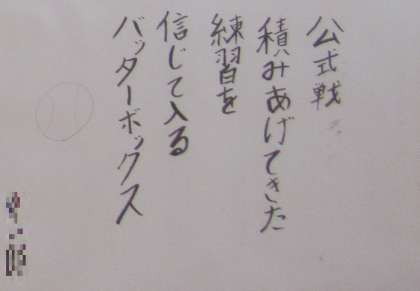 公式戦
積みあげてきた
練習を
信じて入る
バッターボックス